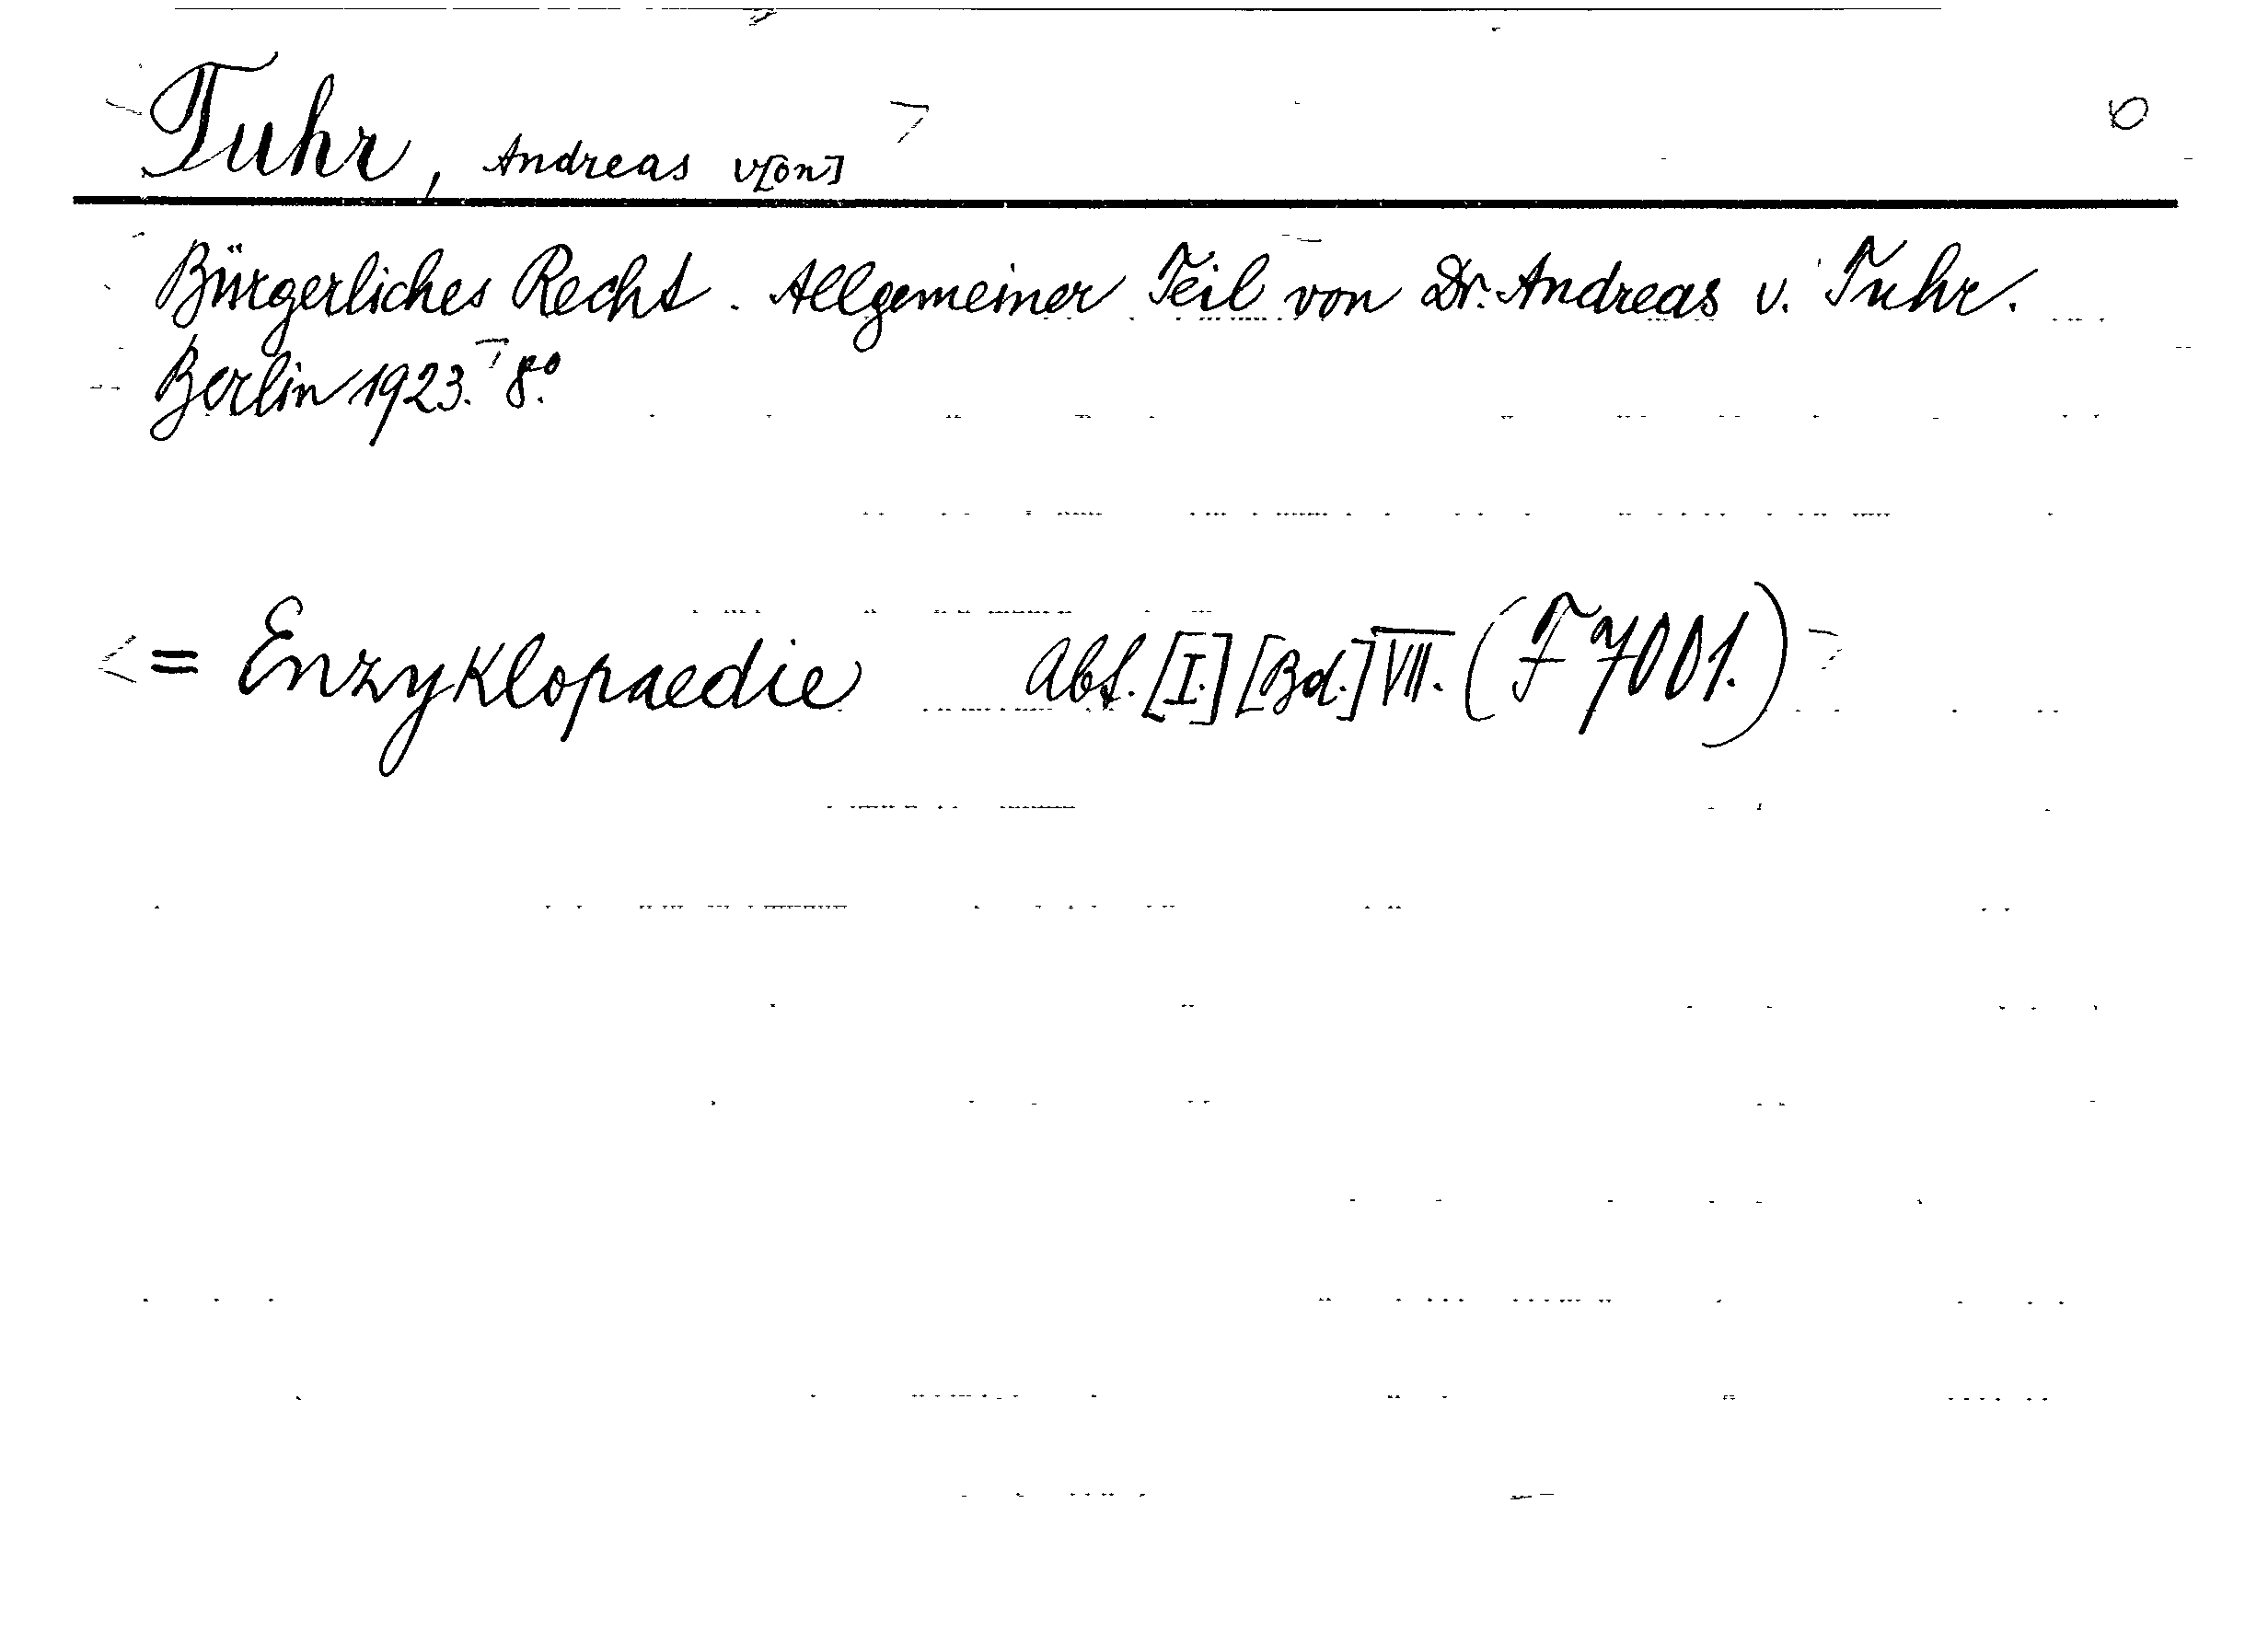 Tuhr, Andreas v[on]
Bürgerliches Recht. Allgemeiner Teil von Dr. Andreas v. Tuhr.
Berlin 1923. 8°.
= Enzyklopaedie Abt. [I.] [Bd.] VII. (F 7001.)